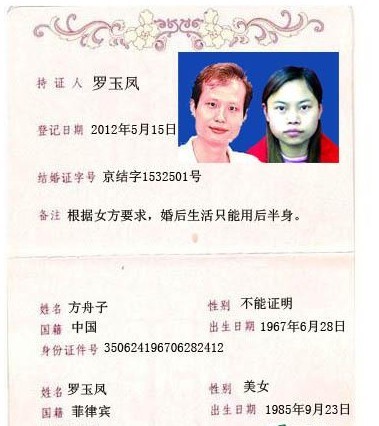 持证人 罗玉凤
登记日期 2012年5月15日
结婚证字号 京结字1532501号
备注 根据女方要求，婚后生活只能用后半身。
姓名 方舟子 性别 不能证明
国籍 中国 出生日期 1967年6月28日
身份证件号 350624196706282412
姓名 罗玉凤 性别 美女
国籍 菲律宾 出生日期 1985年9月23日